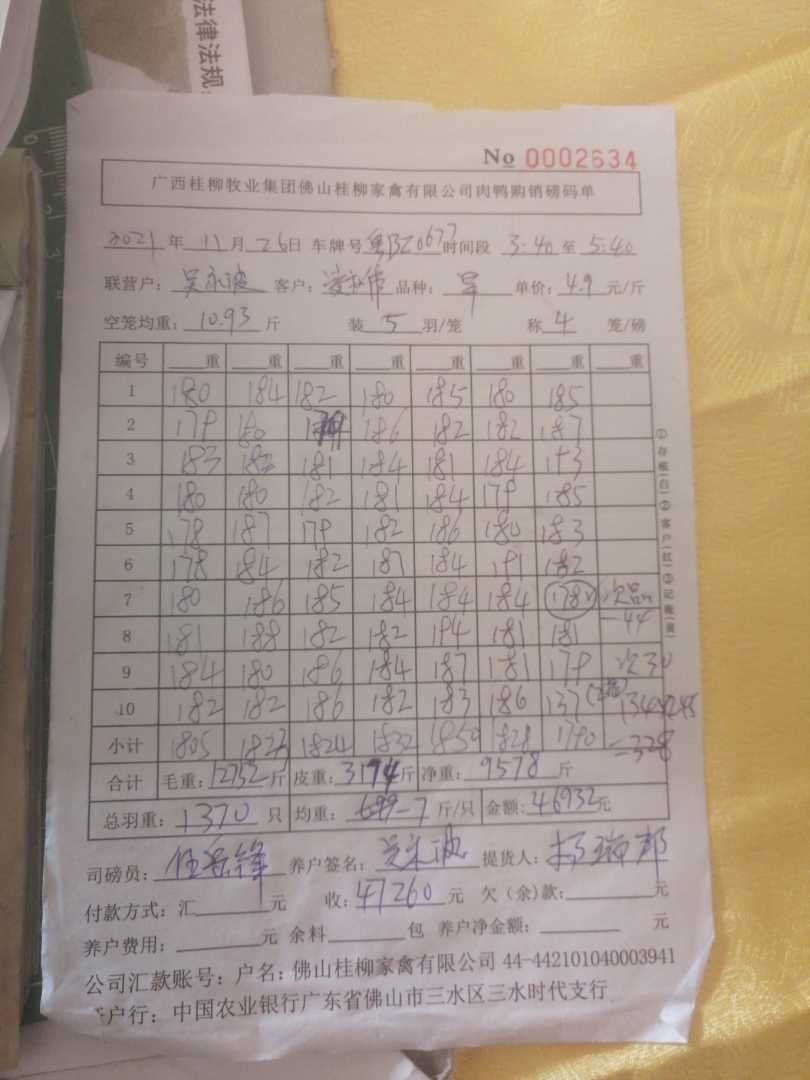 法律法规
No 0002634
广西桂柳牧业集团佛山桂柳家禽有限公司肉鸭购销磅码单
2021年 11月 26日 车牌号 时间段 3:40 至 5:40
联营户: 吴永波 客户: 品种: 单价: 4.9 元/斤
空笼均重: 10.93 斤 装 5 羽/笼 称 4 笼/磅
编号 重 重 重 重 重 重 重 重
1 180 184 182 180 185 180 185
2 179 180 186 182 182 187
3 183 181 184 181 184 193
4 180 180 182 181 184 179 185
5 178 187 179 182 186 180 183
6 178 184 182 181 184 191 182
7 180 186 185 184 184 184 178 次品
8 181 188 182 182 194 181 181 -44
9 184 180 186 184 187 181 179 次30
10 182 182 186 182 183 186 137
小计 1805 1824 1832 1850 1828 1790 =328
合计 毛重: 12752 斤 皮重: 3174 斤 净重: 9578 斤
总羽重: 1370 只 均重: 6.99-7 斤/只 金额: 46932 元
司磅员: 养户签名: 吴永波 提货人: 杨瑞邦
付款方式: 汇 元 收: 47260 元 欠(余)款: 元
养户费用: 元 余料 包 养户净金额: 元
公司汇款账号: 户名: 佛山桂柳家禽有限公司 44-442101040003941
户行: 中国农业银行广东省佛山市三水区三水时代支行
①存根(白)②客户(红)③记账(黄)